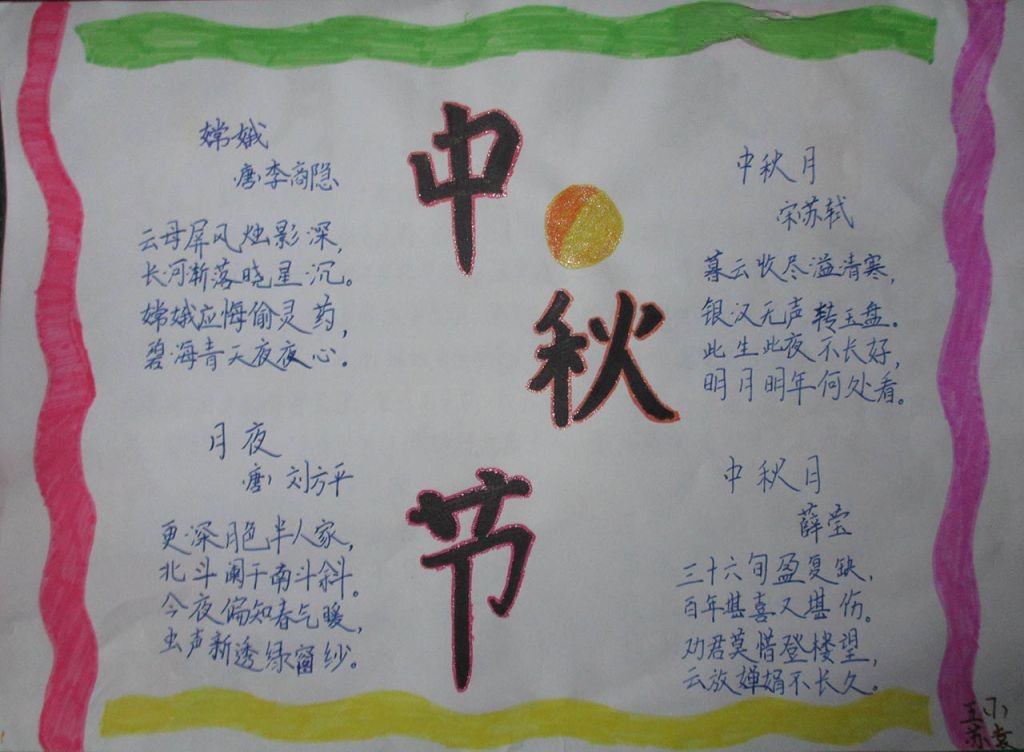 中秋节
嫦娥
(唐)李商隐
云母屏风烛影深,
长河渐落晓星沉。
嫦娥应悔偷灵药,
碧海青天夜夜心。
月夜
(唐)刘方平
更深月色半人家,
北斗阑干南斗斜。
今夜偏知春气暖,
虫声新透绿窗纱。
中秋月
宋苏轼
暮云收尽溢清寒,
银汉无声转玉盘。
此生此夜不长好,
明月明年何处看。
中秋月
薛莹
三十六旬盈复缺,
百年堪喜又堪伤。
劝君莫惜登楼望,
云放婵娟不长久。